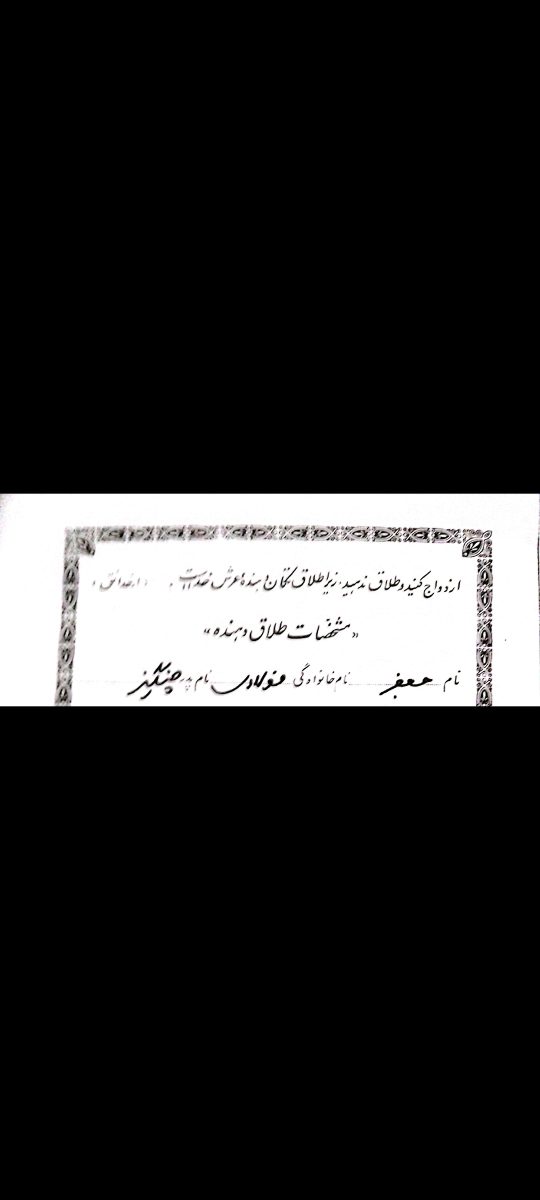 ازدواج کنید و طلاق ندهید، زیرا طلاق تکان دهنده عرش خداست
«مشخصات طلاق دهنده»
نام جعفر نام خانوادگی فولادی نام پدر چنگیز